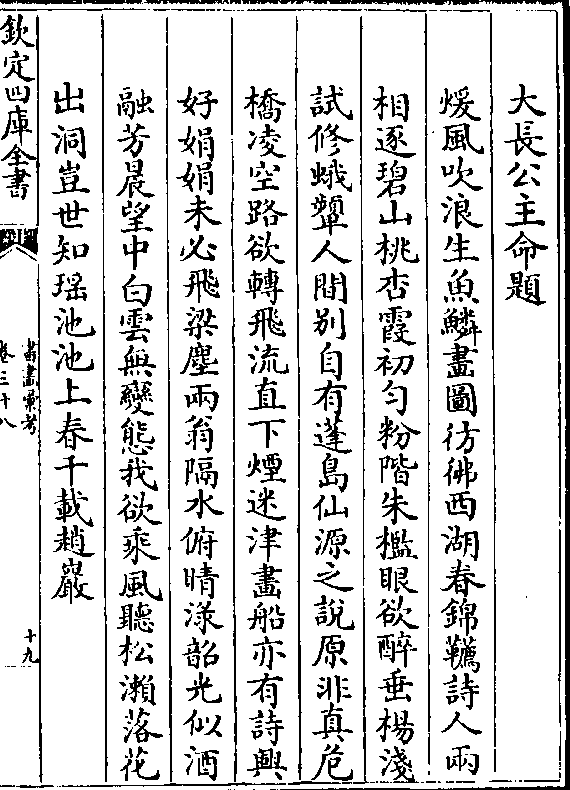 大長公主命題
煖風吹浪生魚鱗畫圖彷彿西湖春錦韉詩人兩
相逐碧山桃杏霞初勻粉階朱檻眼欲醉垂楊淺
試修蛾顰人間別自有蓬島仙源之說原非真危
橋凌空路欲轉飛流直下煙迷津畫船亦有詩興
好娟娟未必飛梁塵兩翁隔水俯晴渌韶光似酒
融芳晨望中白雲無變態我欲乘風聽松瀨落花
出洞豈世知瑶池池上春千載趙巖
欽定四庫全書
書畫彚考
卷三十八
十九